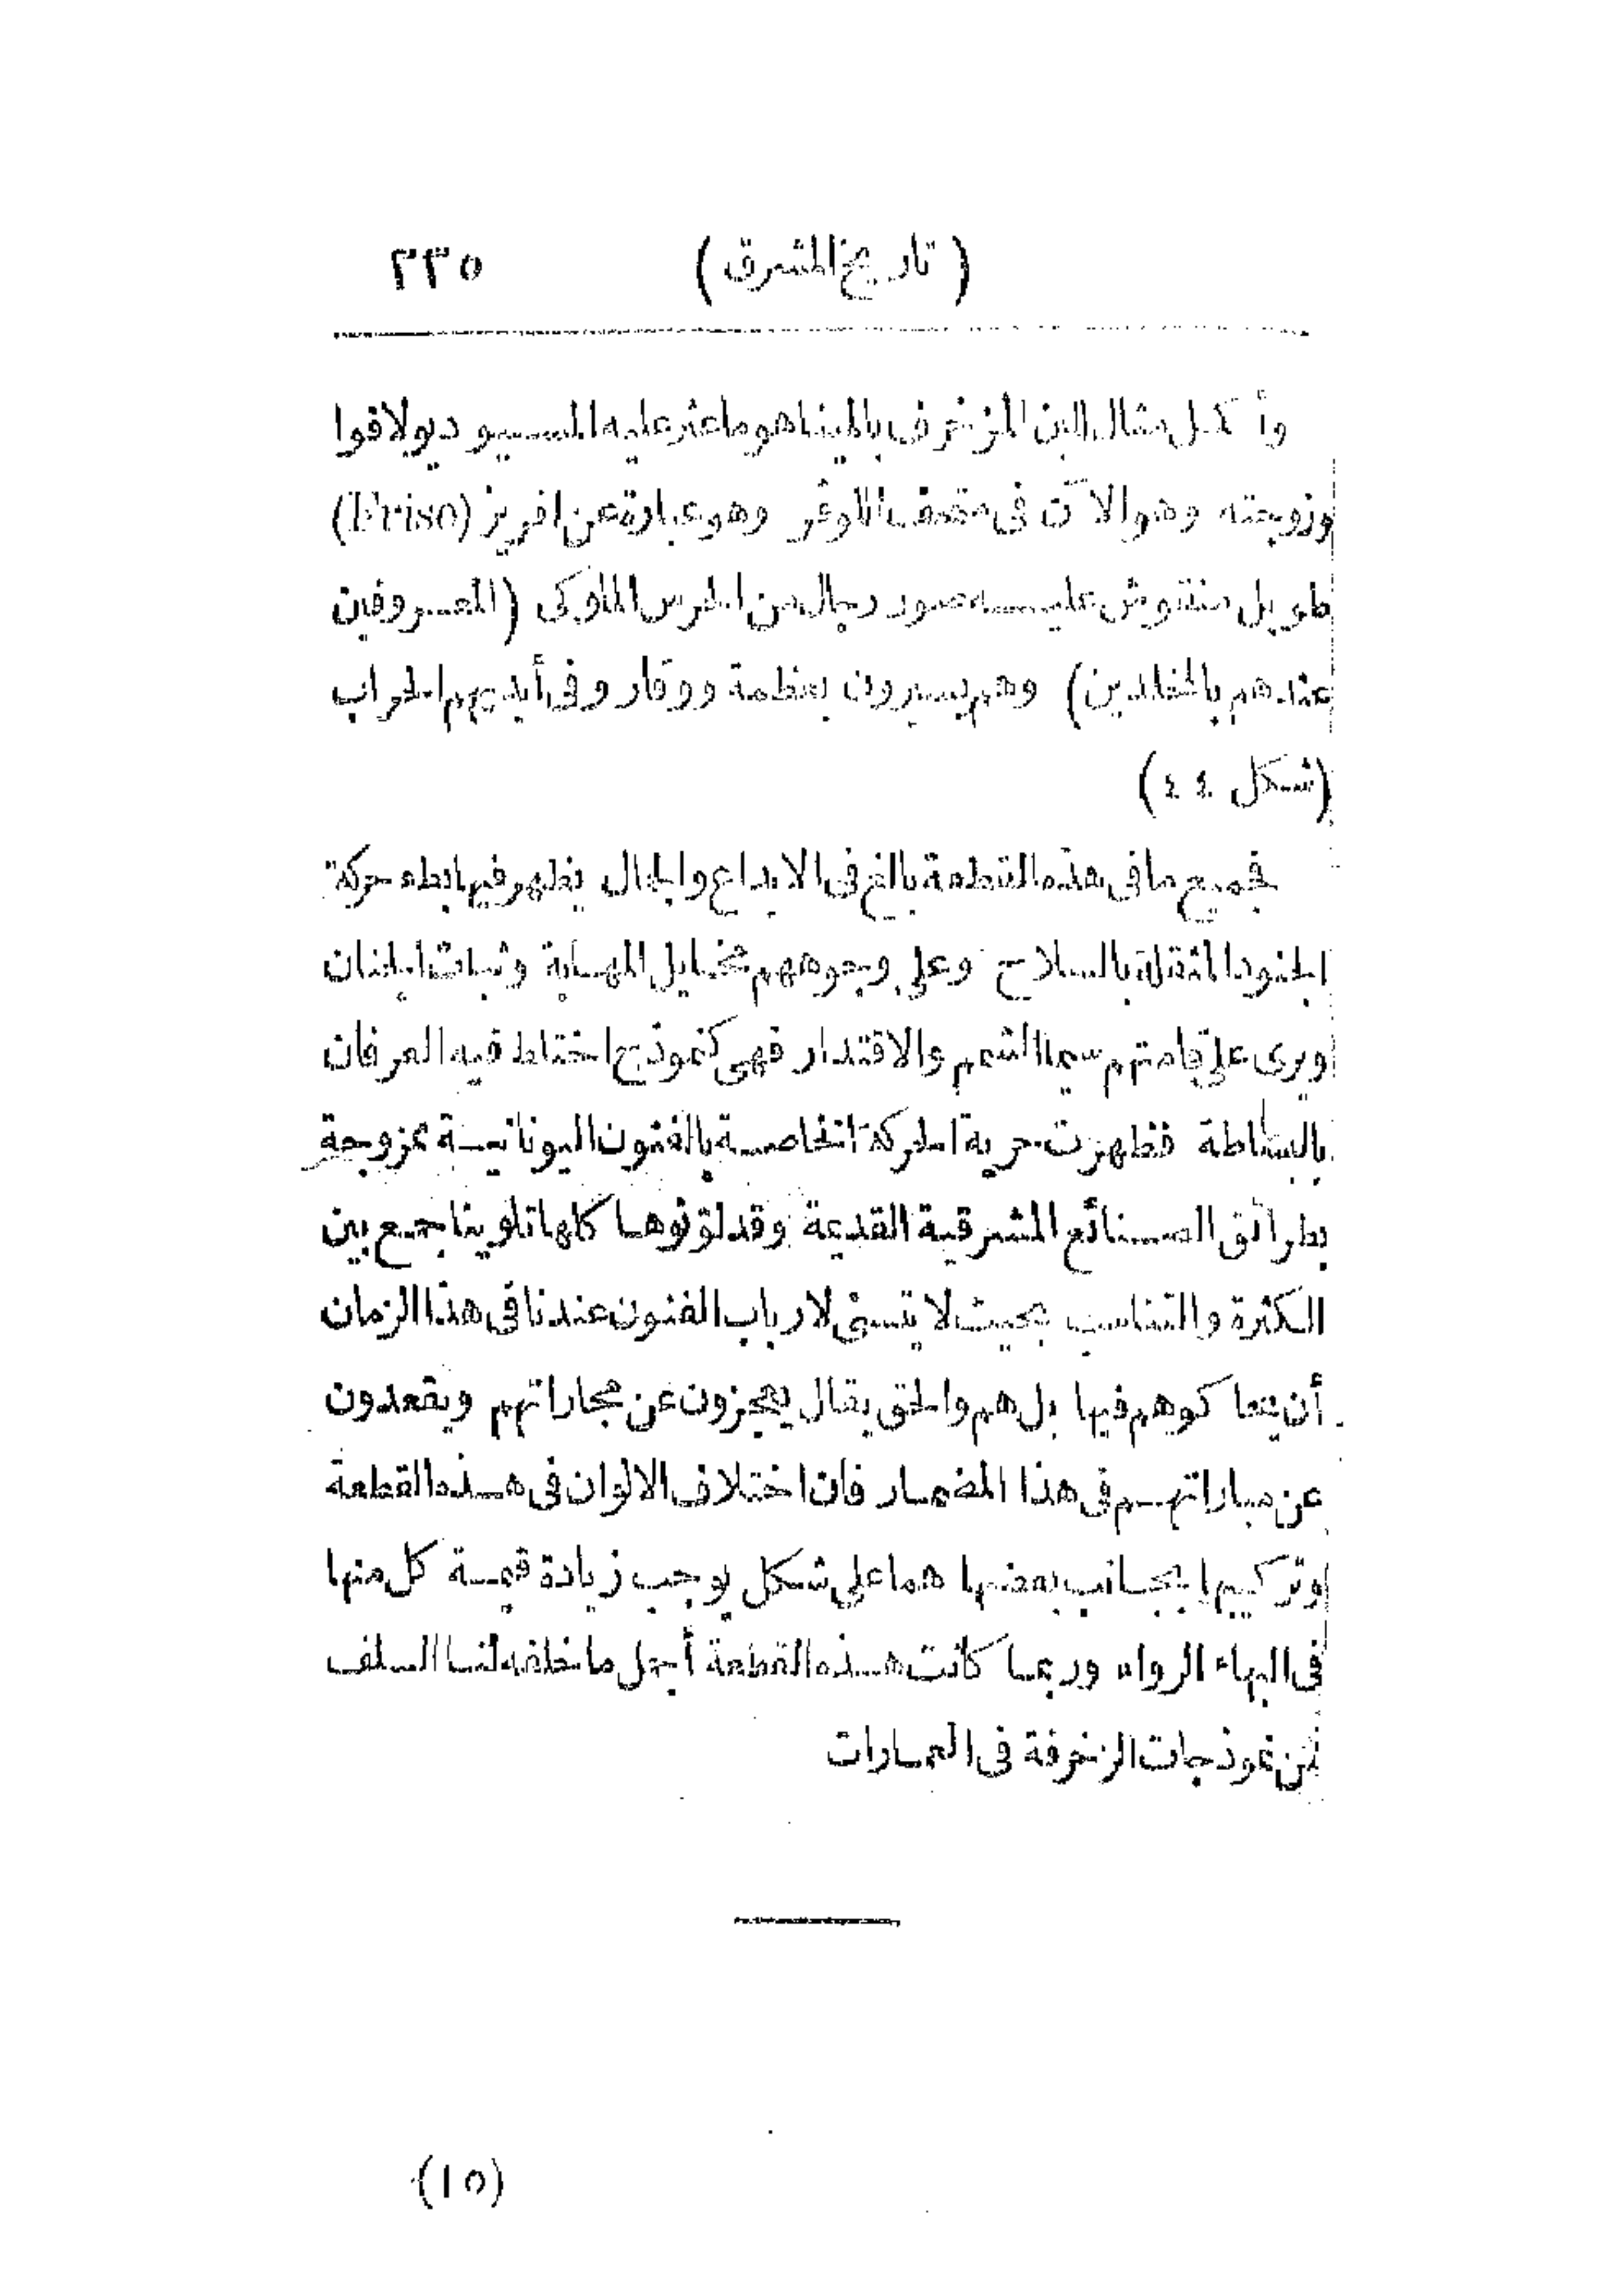 ( تاريخ المشرق ) ٢٣٥
وأكمل مثال للبن المزخرف بالمينا هو ما عثر عليه المسيو ديولافوا
وزوجته وهو الآن فى متحف اللوفر وهو عبارة عن افريز (Frise)
طويل منقوش عليه صور رجال من الحرس الملوكى (المعروفين
عندهم بالمخلدين) وهم يسيرون بعظمة ووقار وفى أيديهم الحراب
(شكل ٤٤)
فجميع ما فى هذه القطعة بالغ فى الابداع والجمال يظهر فيها بطء حركة
الجنود المثقلة بالسلاح وعلى وجوههم مخايل المهابة وثبات الجنان
ويرى على قامتهم سيما الشمم والاقتدار فهى كنموذج اختلط فيه العرفان
بالبساطة فظهرت حرية الحركة الخاصة بالفنون اليونانية ممزوجة
بطرائق الصنائع المشرقية القديمة وقد لوّنوها كلها تلوينا جمع بين
الكثرة والتناسب بحيث لا يتسنى لارباب الفنون عندنا فى هذا الزمان
أن يحاكوهم فيها بل هم والحق يقال يعجزون عن مجاراتهم ويقعدون
عن مباراتهم فى هذا المضمار فان اختلاف الالوان فى هذه القطعة
وتركيبها بجانب بعضها هما على شكل يوجب زيادة قيمة كل منها
فى البهاء الرواء وربما كانت هذه القطعة أجمل ما خلفه لنا السلف
من نموذجات الزخرفة فى العمارات
(١٥)